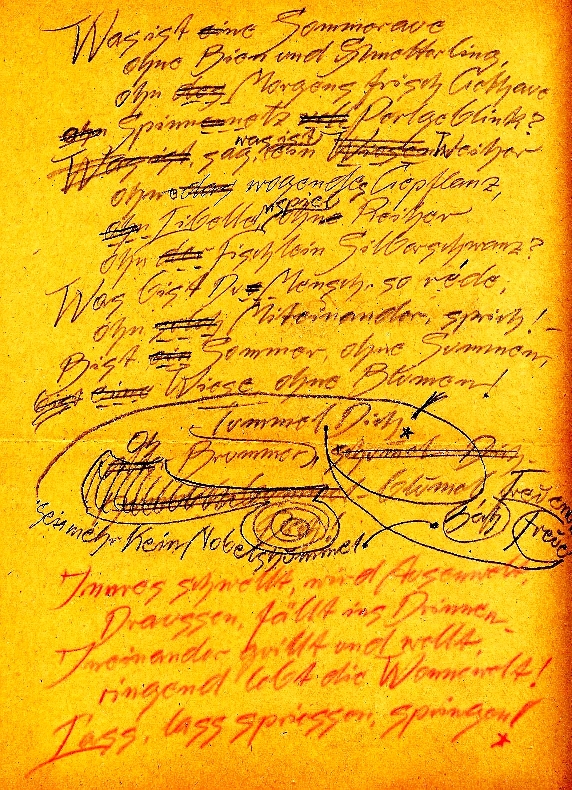 Was ist eine Sommeraue
ohne Bien und Schmetterling,
ohn des Morgens frisch Gethaue
ohn Spinnenetz Perlgeblink?
Was ist, sag, was ist ein Weiher
ohne wogendes Gepflanz,
ohn Libellenspiel ohne Reiher
ohn der Fischlein Silberschwanz?
Was bist Du Mensch, so rede,
ohn Miteinander, sprich!
Bist ein Sommer, ohne Summen,
bist eine Wiese ohne Blumen!
Tummel Dich
oh Brummer, Dich
sei mehr Kein Nobelshümmel
Innres schwellt, wird Aussenwelt,
Draussen, fällt ins Drinnen
Ineinander quillt und wellt,
ringend lebt die Wonnewelt!
Lass, lass spriessen, springen!